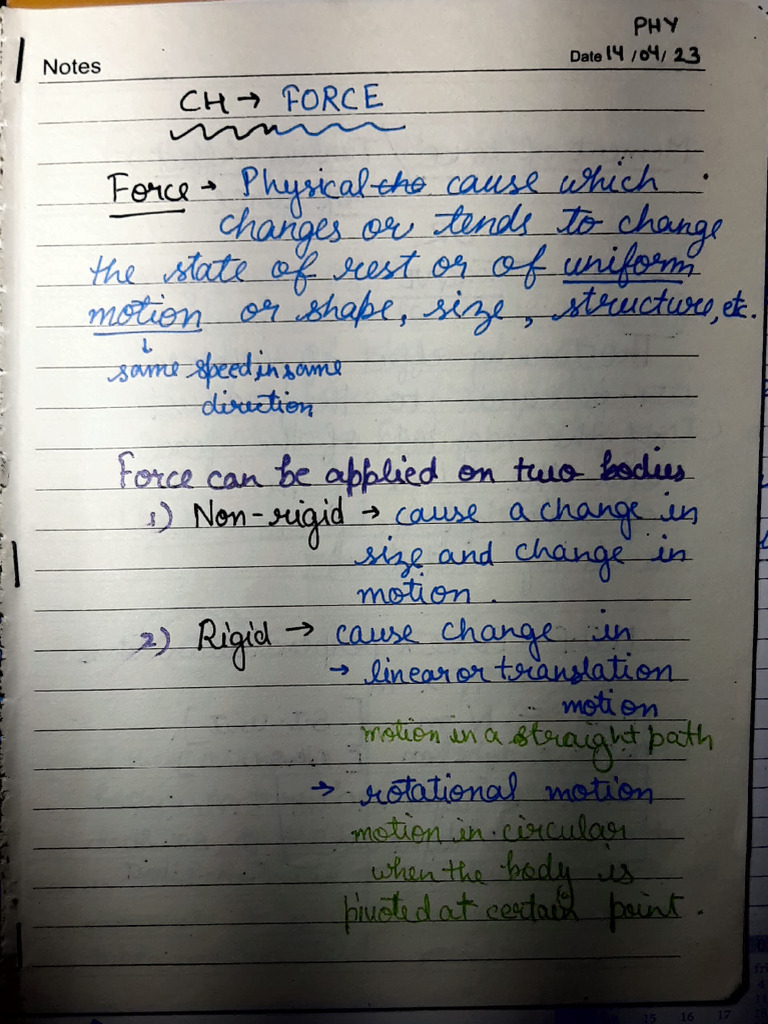 PHY
Notes
Date 14/04/23
CH → FORCE
Force → Physical cho cause which
changes or tends to change
the state of rest or of uniform
motion or shape, size, structure, etc.
↓
same speed in same
direction
Force can be applied on two bodies
1) Non-rigid → cause a change in
size and change in
motion.
2) Rigid → cause change in
→ linear or translation
motion
motion in a straight path
→ rotational motion
motion in circular
when the body is
pivoted at certain point.
15 16 17